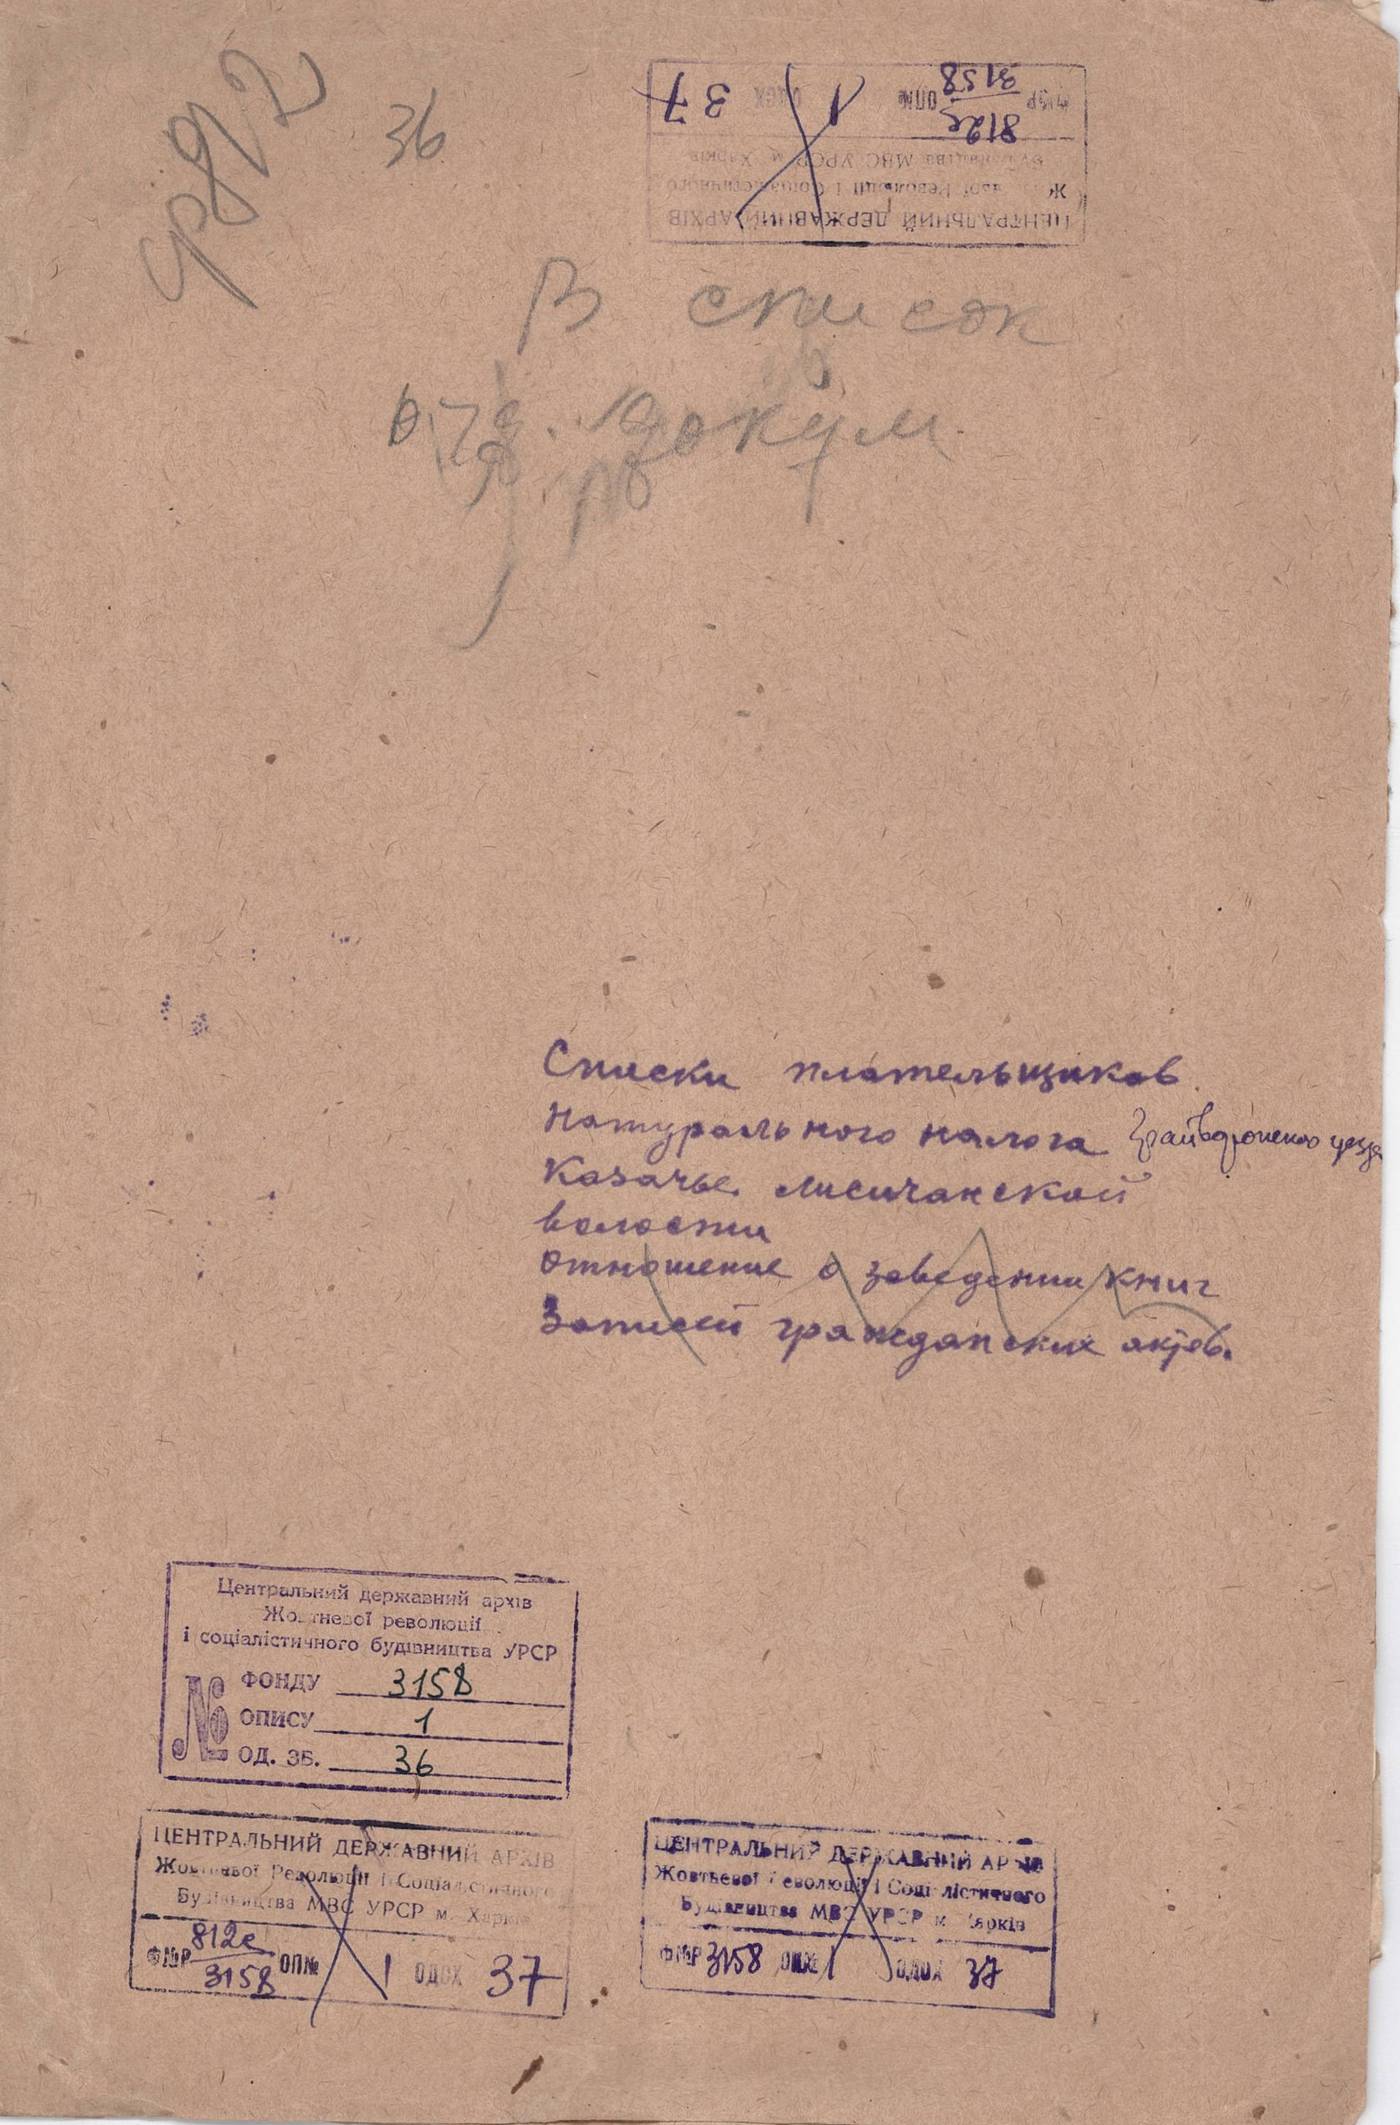 36
ЦЕНТРАЛЬНИЙ ДЕРЖАВНИЙ АРХІВ
Жовтневої Революції і Соціалістичного
Будівництва МВС УРСР м. Харків
Ф№Р 812с/3158 ОП№ 1 ОДСХ 37
В список
докум.
Списки плательщиков
натурального налога Грайворонского уезда
Казачье Лисичанской
волости
отношение о заведении книг
Записей гражданских актов.
Центральний державний архів
Жовтневої революції
і соціалістичного будівництва УРСР
№ ФОНДУ 3158
ОПИСУ 1
ОД. ЗБ. 36
ЦЕНТРАЛЬНИЙ ДЕРЖАВНИЙ АРХІВ
Жовтневої Революції і Соціалістичного
Будівництва МВС УРСР м. Харків
Ф№Р 812с/3158 ОП№ 1 ОДСХ 37
ЦЕНТРАЛЬНИЙ ДЕРЖАВНИЙ АРХІВ
Жовтневої Революції і Соціалістичного
Будівництва МВС УРСР м. Харків
Ф№Р 3158 ОП№ 1 ОДСХ 37